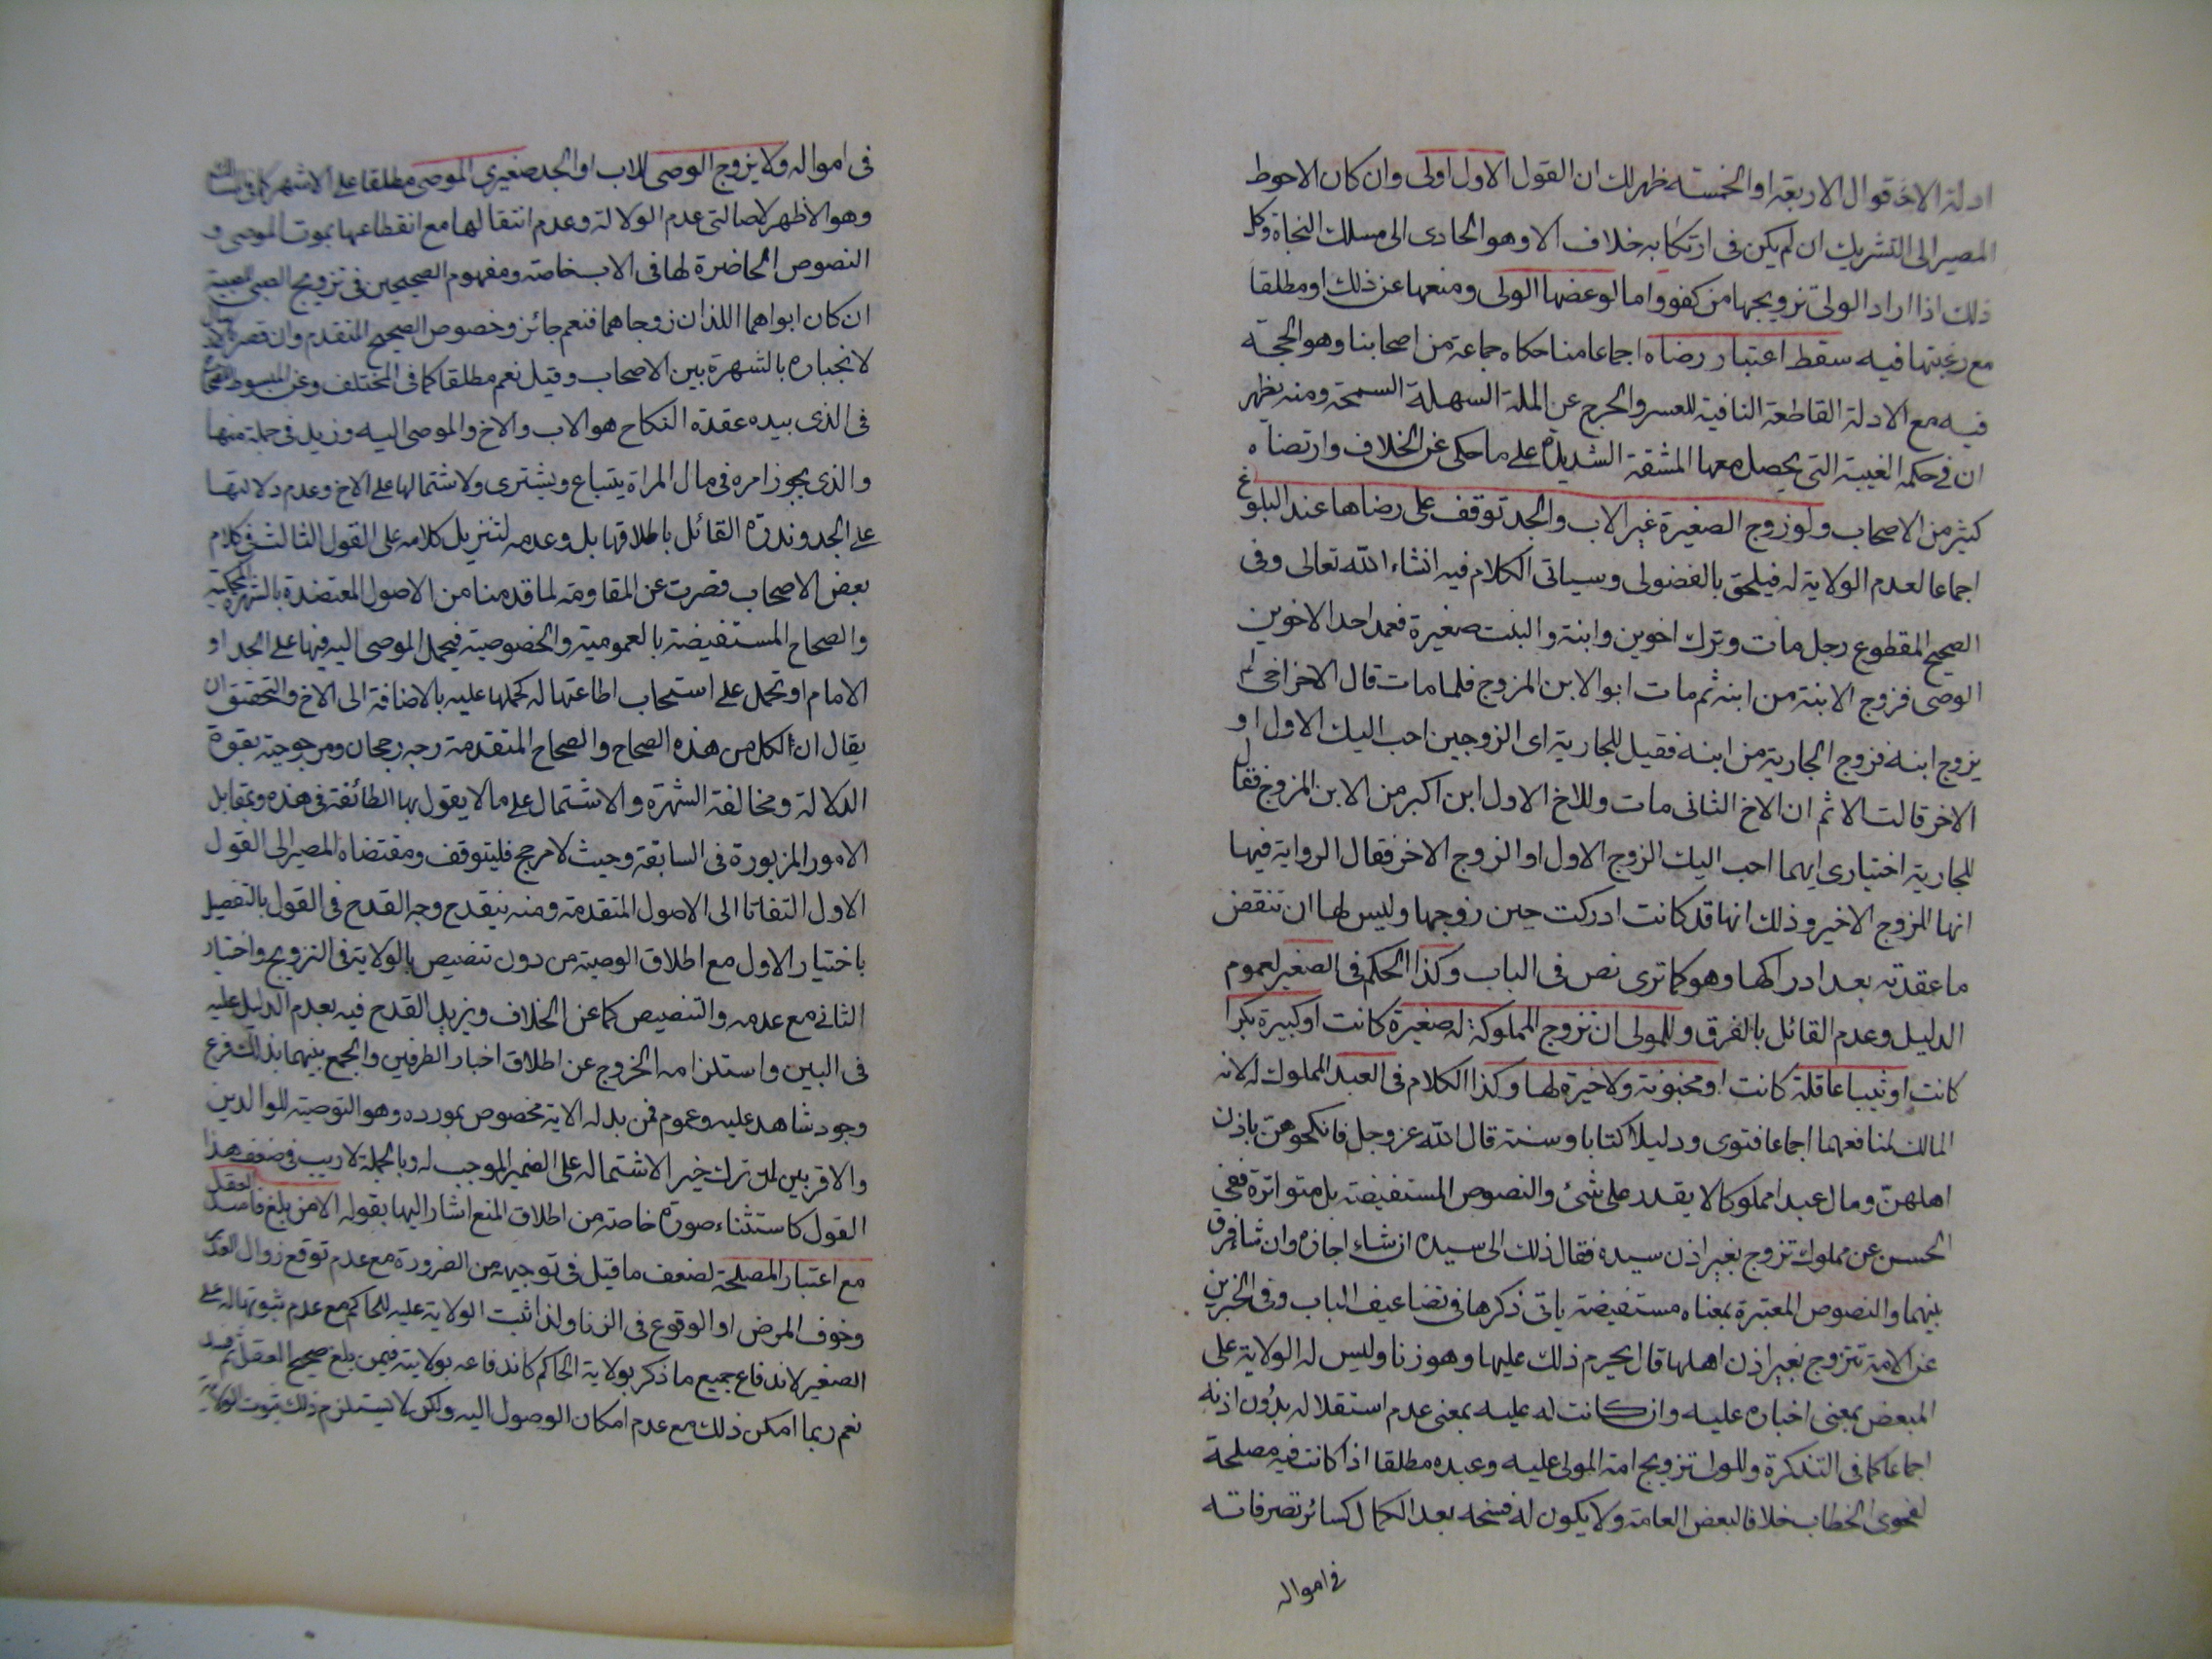 ادلة الاقوال الاربعة او الخمسة ظهر لك ان القول الاول اولى وان كان الاحوط
المصير الى التشريك ان لم يكن فى ارتكابه خلاف الا وهو الحادى الى مسلك النجاة وكل
ذلك اذا اراد الولى تزويجها من كفوو اما لو عضها الولى ومنعها عن ذلك او مطلقا
مع رغبتها فيه سقط اعتبار رضاه اجماعا منا حكاه جماعة من اصحابنا وهو الحجة
فيه مع الادلة القاطعة النافية للعسر والحرج عن الملة السهلة السمحة ومنه يظهر
ان فى حكمه الغيبة التى يحصل معها المشقة الشديدة على ما حكى عن الخلاف وارتضاه
كثير من الاصحاب ولو زوج الصغيرة غير الاب والجد توقف على رضاها عند البلوغ
اجماعا لعدم الولاية له فيلحق بالفضولى وسياتى الكلام فيه انشاء الله تعالى وفى
الصحيح المقطوع رجل مات وترك اخوين وابنة والبنت صغيرة فعمد احد الاخوين
الوصى فزوج الابنة من ابنه ثم مات ابو الابن المزوج فلما مات قال الاخر اخى لم
يزوج ابنه فزوج الجارية من ابنه فقيل للجارية اى الزوجين احب اليك الاول او
الاخر قالت الا ثم ان الاخ الثانى مات وللاخ الاول ابن اكبر من الابن المزوج فقال
للجارية اختيارى ايهما احب اليك الزوج الاول او الزوج الاخر فقال الرواية فيها
انها المزوج الاخير وذلك انها قد كانت ادركت حين زوجها وليس لها ان تنقض
ما عقدته بعد ادراكها وهو كما ترى نص فى الباب وكذا الحكم فى الصغير لعموم
الدليل وعدم القائل بالفرق وللمولى ان تزوج المملوكة له صغيرة كانت او كبيرة بكرا
كانت او ثيبا عاقلة كانت او مجنونة ولا خيرة لها وكذا الكلام فى العبد المملوك له لانه
المالك لمنافعهما اجماعا فتوى ودليلا كتابا وسنة قال الله عز وجل فانكحوهن باذن
اهلهن ومال عبدا مملوكا لا يقدر على شئ والنصوص المستفيضة بل متواترة ففى
الحسن عن مملوك تزوج بغير اذن سيده فقال ذلك الى سيده ان شاء اجازه وان شاء فرق
بينهما والنصوص المعتبرة بمعناه مستفيضة ياتى ذكرها فى تضاعيف الباب وفى الخبرين
عن الامة تتزوج بغير اذن اهلها قال يحرم ذلك عليها وهو زنا وليس له الولاية على
المبعض بمعنى اخباره عليه وان كانت له عليه بمعنى عدم استقلاله بدون اذنه
اجماعا كما فى التذكرة وللولى تزويج امة المولى عليه وعبده مطلقا اذا كانت فيه مصلحة
لفحوى الخطاب خلافا لبعض العامة ولا يكون له فسخه بعد الكمال كسائر تصرفاته
فى امواله
فى امواله ولا يزوج الوصى للاب او الجد صغيرى الموصى مطلقا على الاشهر كما فى
وهو الاظهر لاصالتى عدم الولاية وعدم انتقالها مع انقطاعها بموت الموصى و
النصوص الحاضرة لها فى الاب خاصة ومفهوم الصحيحين فى تزويج الصبى الصبية
ان كان ابواهما اللذان زوجاهما فنعم جائز وخصوص الصحيح المتقدم وان قصر
لانجباره بالشهرة بين الاصحاب وقيل نعم مطلقا كما فى المختلف وعن المبسوط
فى الذى بيده عقدة النكاح هو الاب والاخ والموصى اليه وزيد فى جملة منها
والذى يجوز امره فى مال المراة يبتاع ويشترى ولاشتمالها على الاخ وعدم دلالتها
على الجد وندرة القائل باطلاقها بل وعدمه لتنزيل كلامه على القول الثالث فى كلام
بعض الاصحاب قصرت عن المقاومة لما قدمنا من الاصول المعتضدة بالشهرة المحكية
والصحاح المستفيضة بالعمومية والخصوصية فيحمل الموصى اليه فيها على الجد او
الامام او تحمل على استحباب اطاعتها له كحملها عليه بالاضافة الى الاخ والتحقيق ان
يقال ان لكل من هذه الصحاح والصحاح المتقدمة وجه رجحان ومرجوحية بقوة
الدلالة ومخالفة الشهرة والاشتمال على ما لا يقول بها الطائفة فى هذه وبمقابل
الامور المزبورة فى السابقة وحيث لا مرجح فليتوقف ومقتضاه المصير الى القول
الاول التفاتا الى الاصول المتقدمة ومنه ينقدح وجه القدح فى القول بالتفصيل
باختيار الاول مع اطلاق الوصية من دون تنصيص بالولاية فى التزويج واختيار
الثانى مع عدمه والتنصيص كما عن الخلاف ويزيد القدح فيه بعدم الدليل عليه
فى البين واستلزامه الخروج عن اطلاق اخبار الطرفين والجمع بينهما بذلك فرع
وجود شاهد عليه وعموم فمن بدله الاية مخصوص بمورده وهو التوصية للوالدين
والاقربين لمن ترك خيرا لاشتماله على الضمير الموجب له وبالجملة لا ريب فى ضعف هذا
القول كاستثناء صورة خاصة من اطلاق المنع اشار اليها بقوله الا من بلغ فاسد العقل
مع اعتبار المصلحة لضعف ما قيل فى توجيهه من الضرورة مع عدم توقع زوال العذر
وخوف المرض او الوقوع فى الزنا ولذا ثبت الولاية عليه للحاكم مع عدم ثبوتها له على
الصغير لاندفاع جميع ما ذكر بولاية الحاكم كاندفاعه بولايته فيمن بلغ صحيح العقل ثم فسد
نعم ربما امكن ذلك مع عدم امكان الوصول اليه ولكن لا يستلزم ذلك ثبوت الولاية